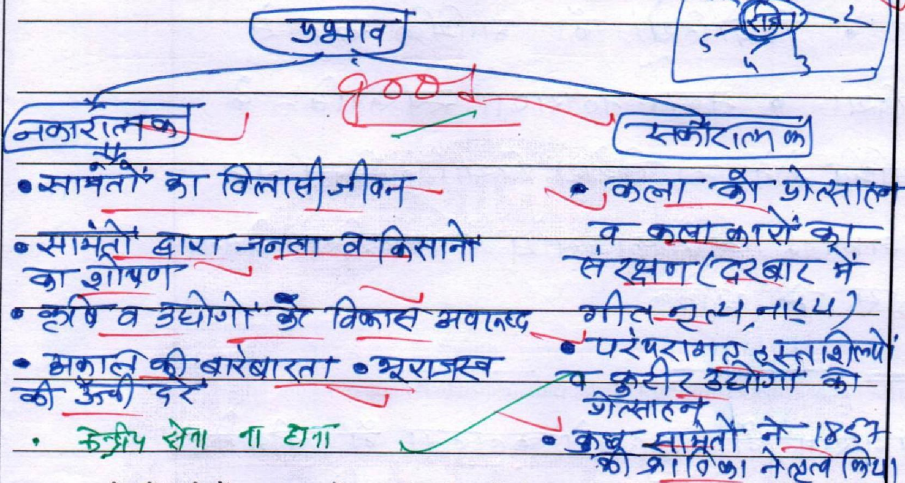 प्रभाव
राजा 2
5 4 3
good
नकारात्मक
सकारात्मक
• सामंतों का विलासी जीवन
• सामंतों द्वारा जनता व किसानों
का शोषण
• कृषि व उद्योगों का विकास अवरुद्ध
• अकाल की बारंबारता • भूराजस्व
की ऊँची दरें
• केन्द्रीय सेना ना होना
• कला को प्रोत्साहन
व कलाकारों का
संरक्षण (दरबार में
गीत नृत्य, नाट्य)
• परंपरागत हस्तशिल्पों
व कुटीर उद्योगों को
प्रोत्साहन
• कुछ सामंतों ने 1857
की क्रांति का नेतृत्व किया